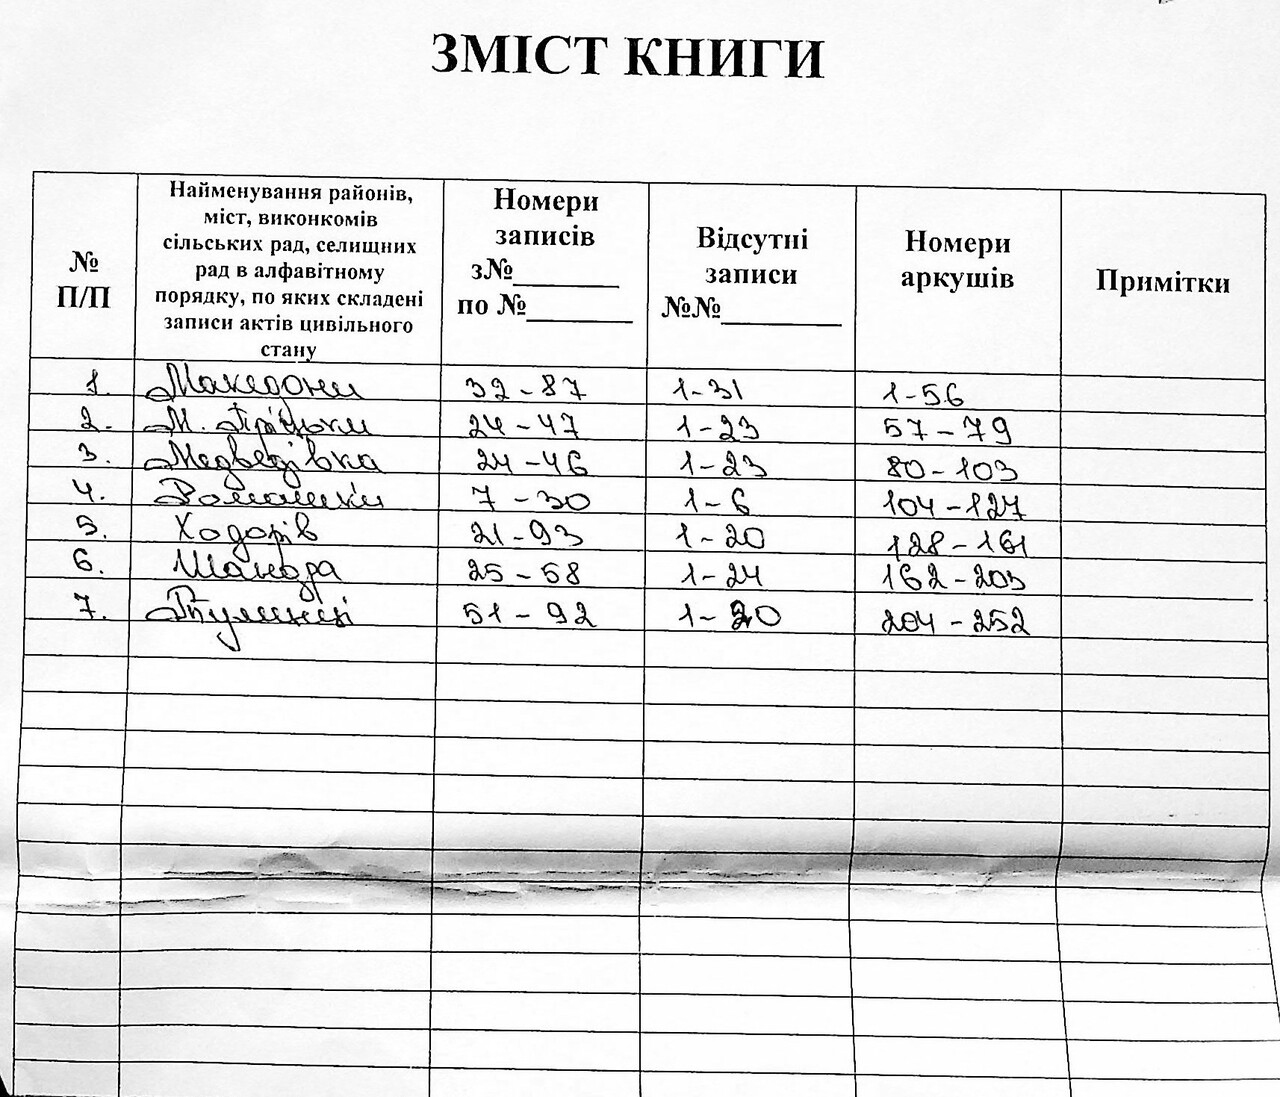 ЗМІСТ КНИГИ
№ П/П
Найменування районів,
міст, виконкомів
сільських рад, селищних
рад в алфавітному
порядку, по яких складені
записи актів цивільного
стану
Номери
записів
з№________
по №________
Відсутні
записи
№№_________
Номери
аркушів
Примітки
1. Македони 32-87 1-31 1-56
2. М. Пріцьки 24-47 1-23 57-79
3. Медведівка 24-46 1-23 80-103
4. Ромашки 7-30 1-6 104-127
5. Ходорів 21-93 1-20 128-161
6. Шандра 25-58 1-24 162-203
7. 51-92 1-20 204-252